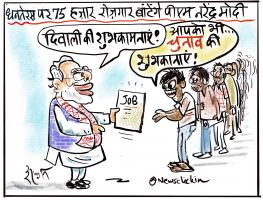 धनतेरस पर 75 हजार रोज़गार बांटेंगे पीएम नरेंद्र मोदी
दिवाली की
शुभकामनाएं!
आपको भी...
चुनाव की
शुभकामनाएं!
JOB
@Newsclickin